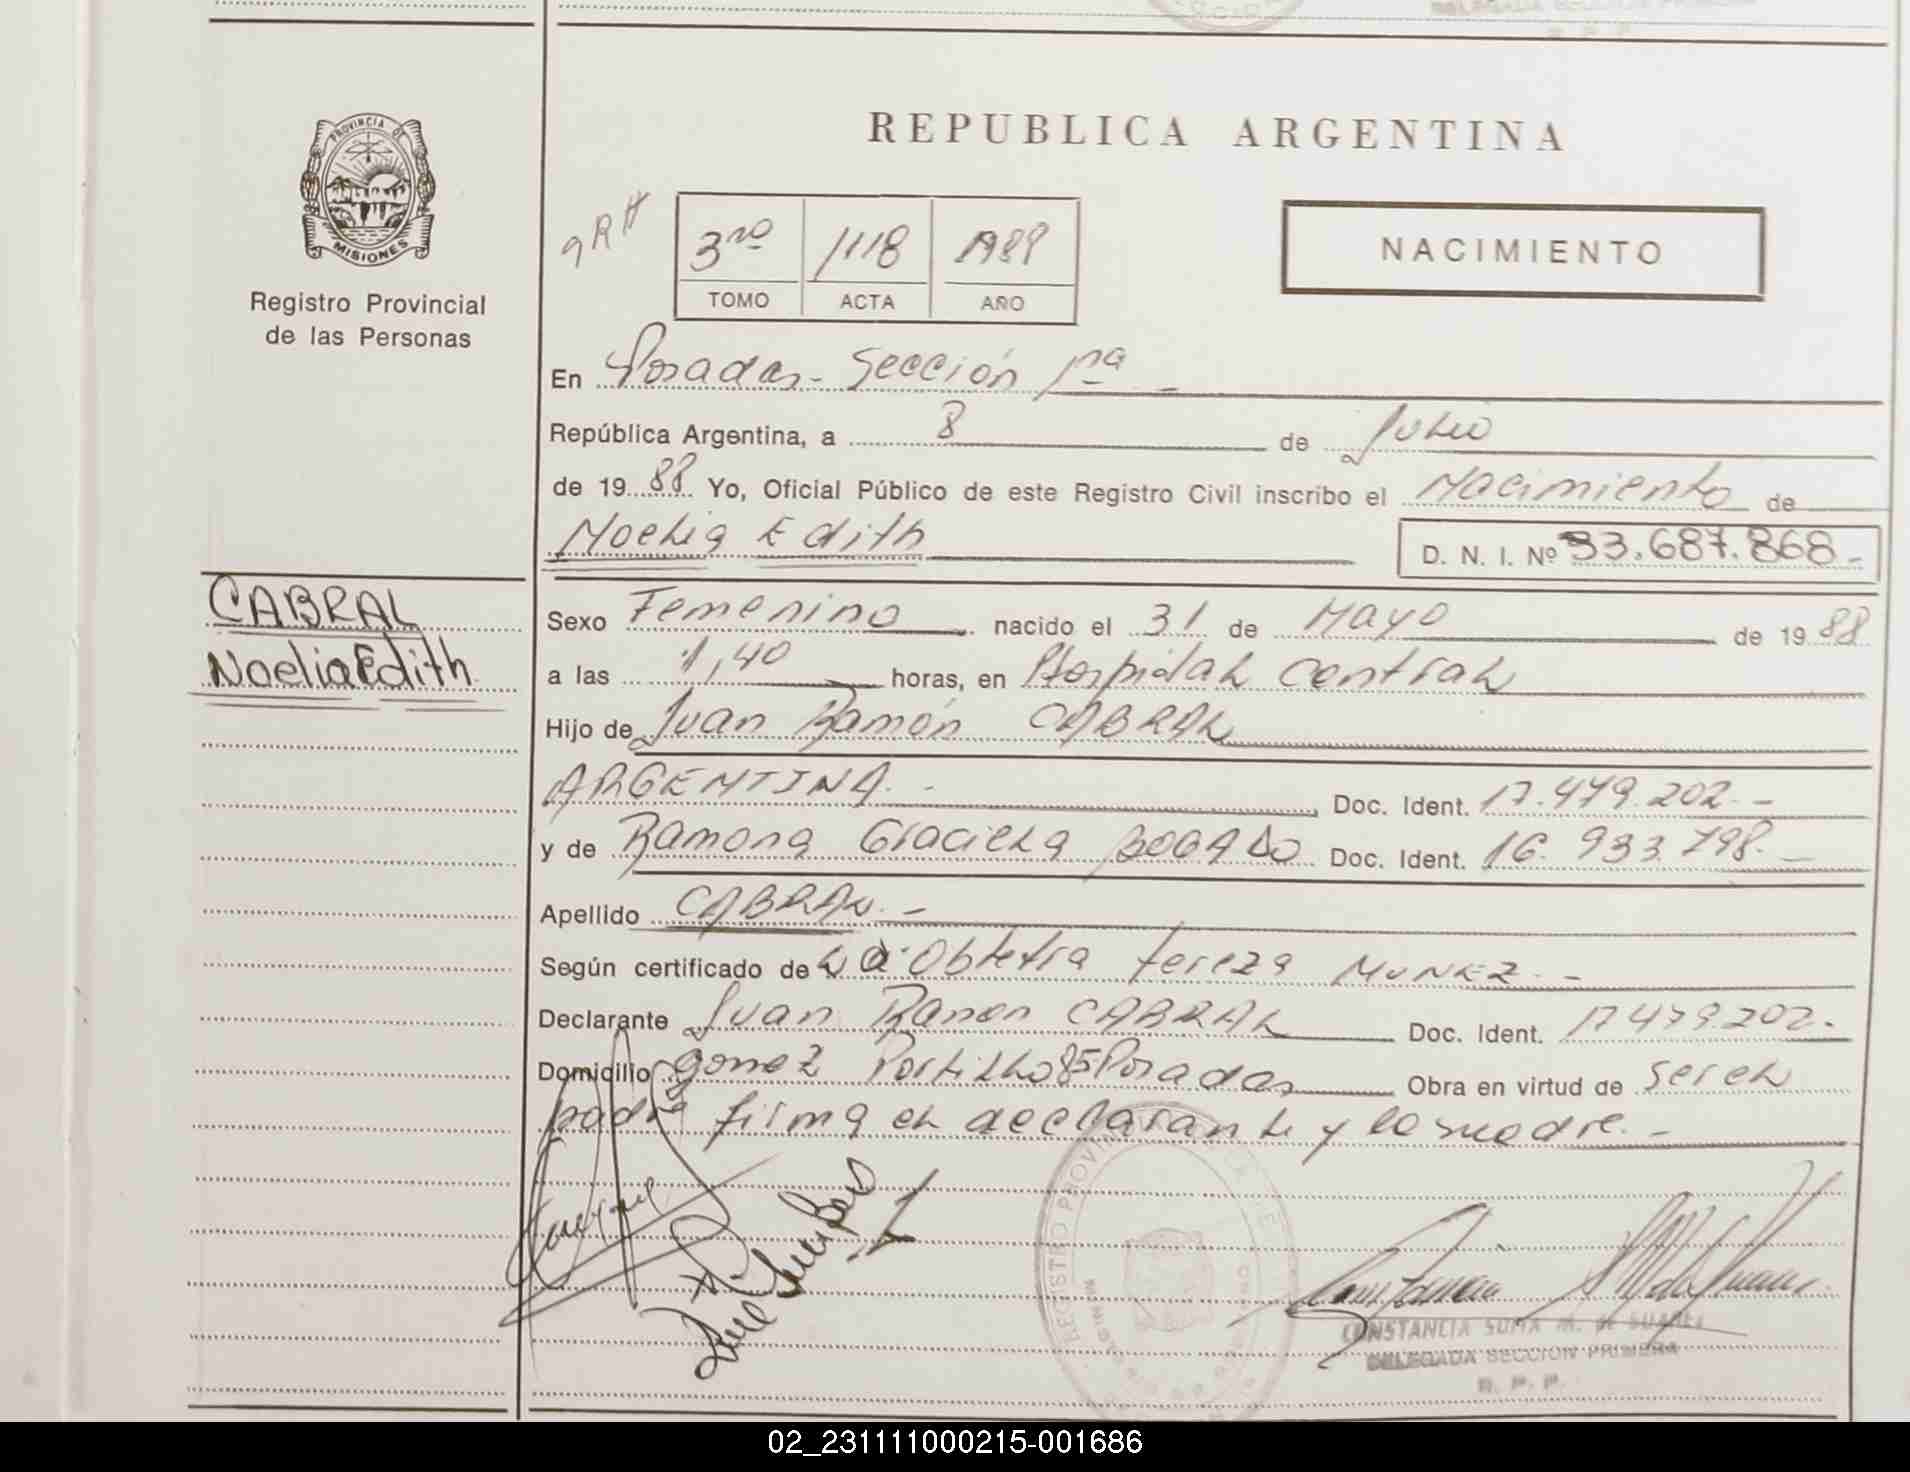 REPUBLICA ARGENTINA
PROVINCIA DE
MISIONES
Registro Provincial
de las Personas
3ro 1118 1988
TOMO ACTA AÑO
NACIMIENTO
En Posadas - Sección 1ra -
República Argentina, a 8 de Julio
de 1988 Yo, Oficial Público de este Registro Civil inscribo el Nacimiento de
Noelia Edith
D. N. I. Nº 33.687.868-
CABRAL
Noelia Edith
Sexo Femenino nacido el 31 de Mayo de 1988
a las 1,40 horas, en Hospital Central
Hijo de Juan Ramón CABRAL
ARGENTINA.- Doc. Ident. 17.479.202.-
y de Ramona Graciela BOGADO Doc. Ident. 16.933.798.-
Apellido CABRAL.-
Según certificado de La Obtetra Tereza MUNEZ.-
Declarante Juan Ramon CABRAL Doc. Ident. 17479202.
Domicilio gomez Portillo 85 Posadas Obra en virtud de ser el
padre firma el declarante y la madre.-
REGISTRO PROVINCIAL DE
MISIONES
CONSTANCIA SUMA M. de SUAREZ
DELEGADA SECCION PRIMERA
R. P. P.
02_231111000215-001686